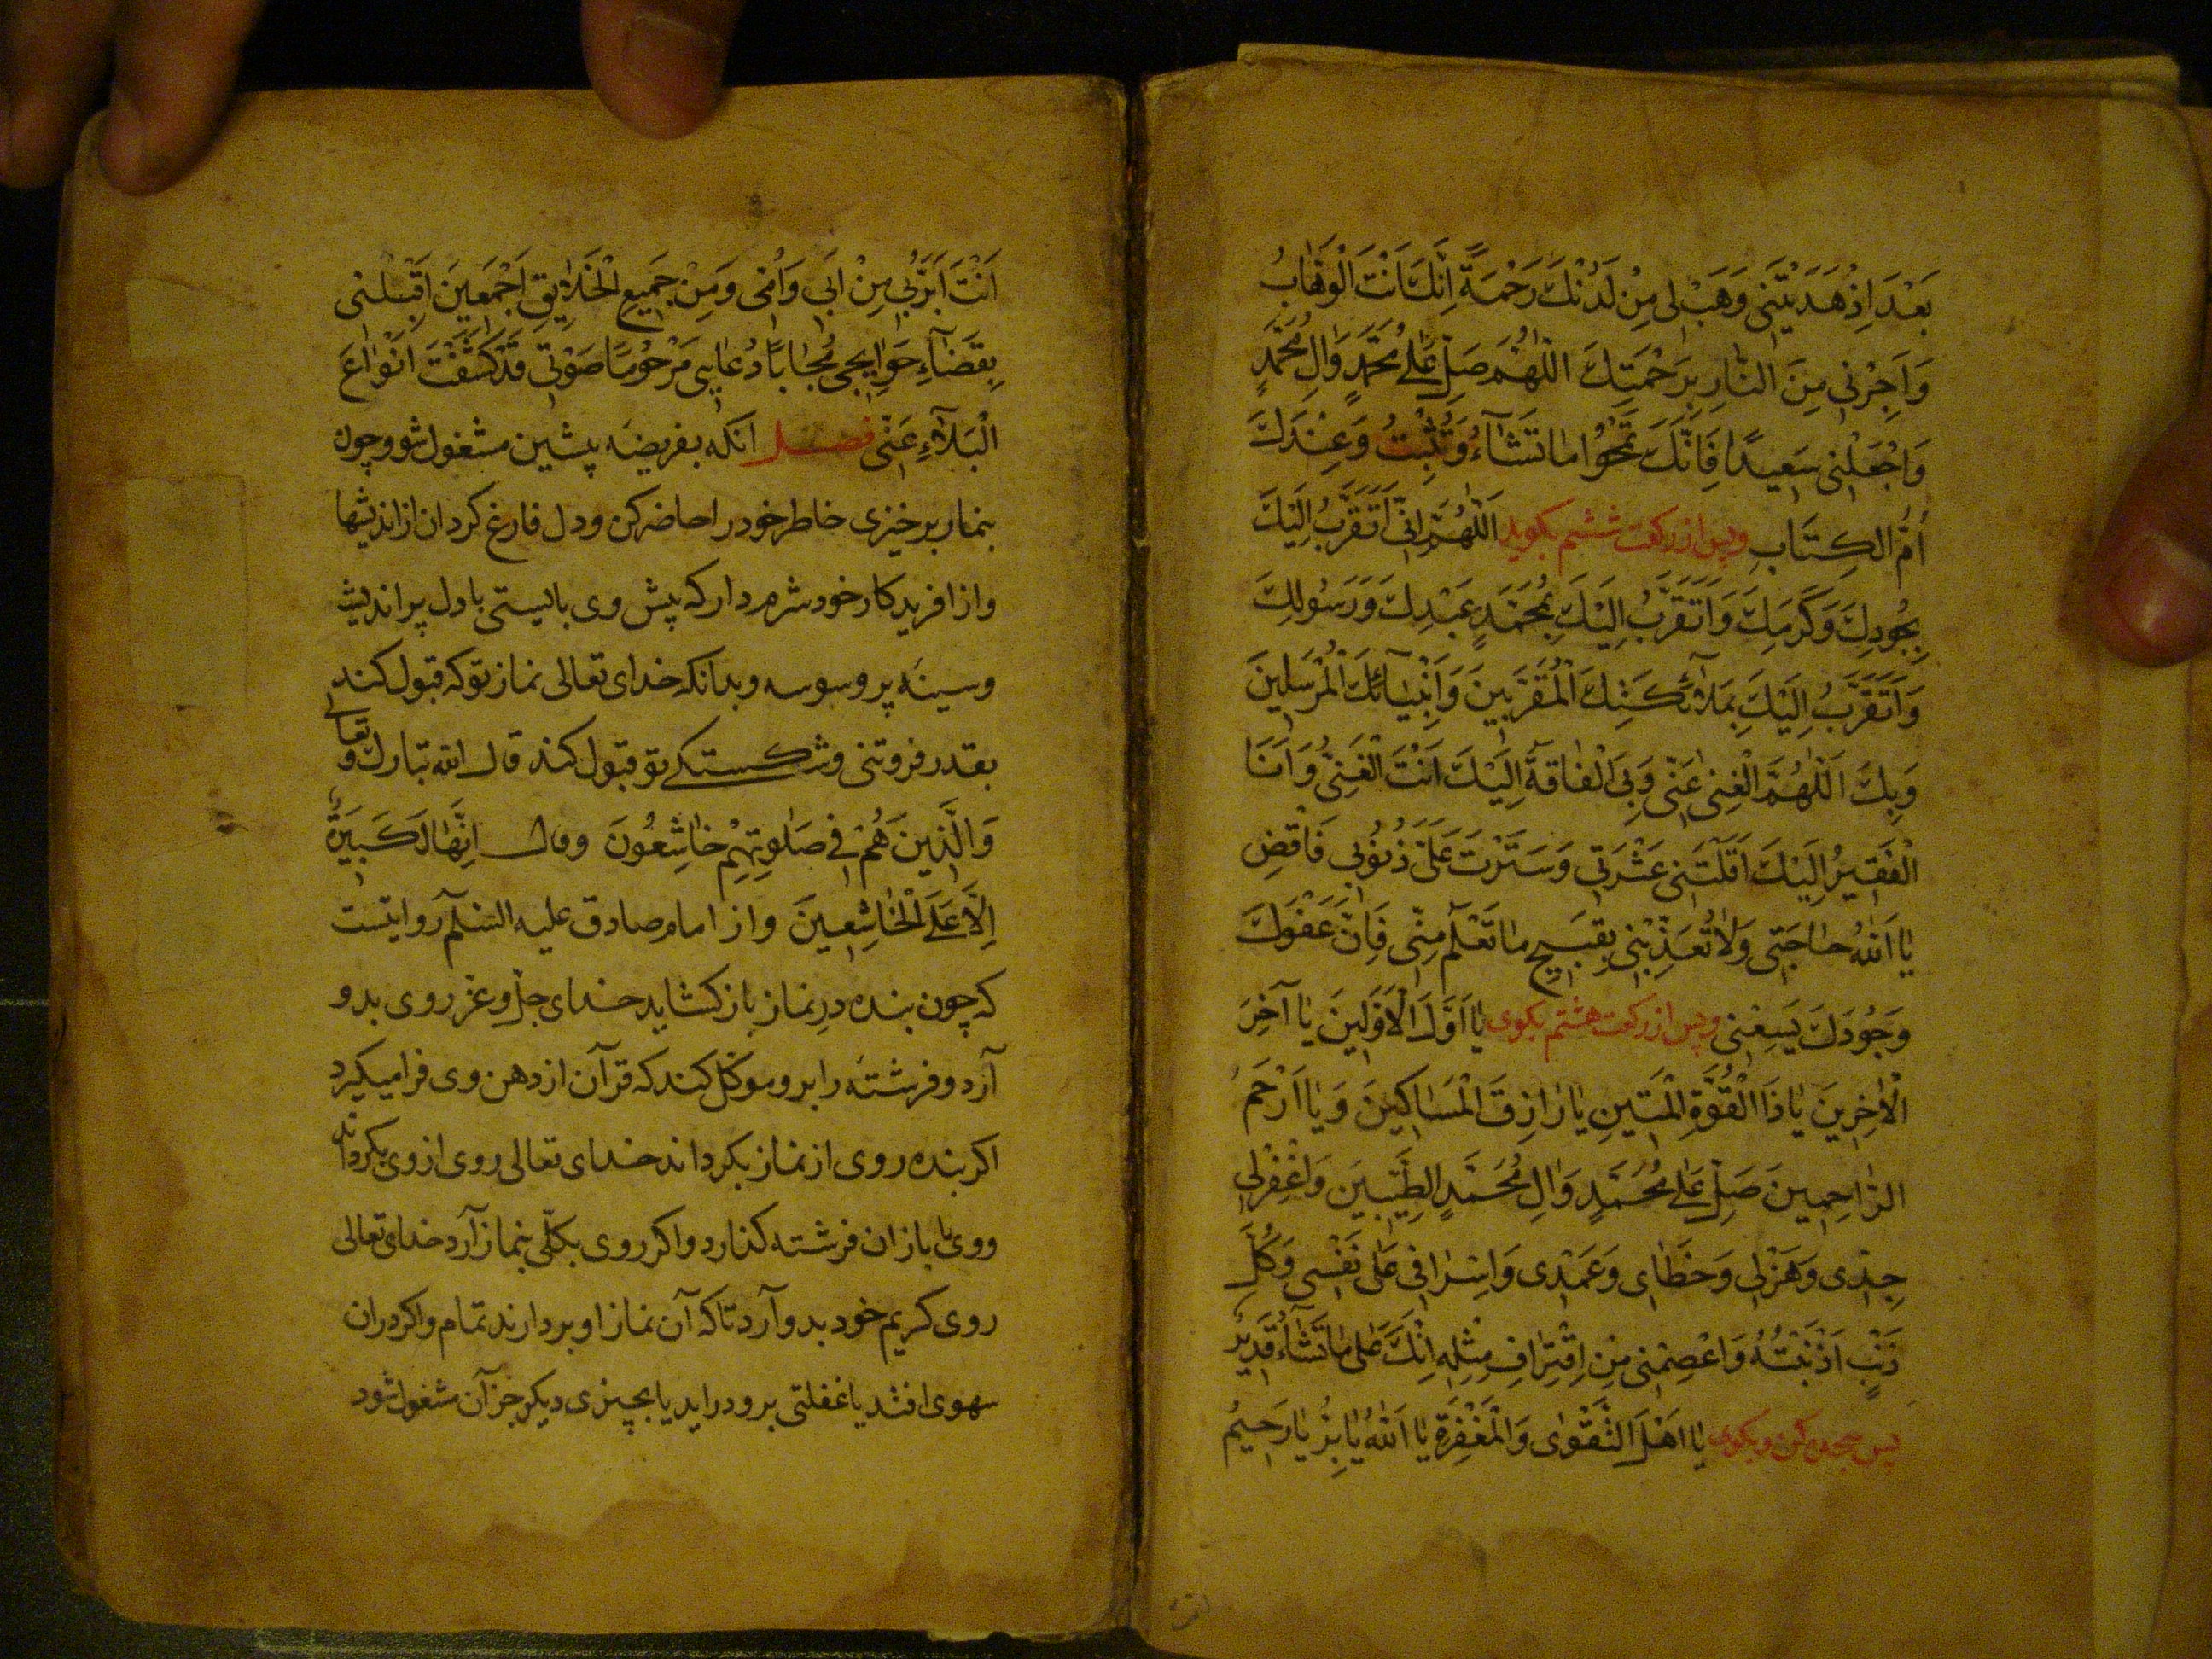 بَعْدَ اِذْ هَدَيْتَنى وَهَبْ لى مِنْ لَدُنْكَ رَحْمَةً اِنَّكَ اَنْتَ الْوَهّابُ
وَاَجِرْنى مِنَ النّارِ بِرَحْمَتِكَ اَللّهُمَّ صَلِّ عَلى مُحَمَّدٍ وَالِ مُحَمَّدٍ
وَاجْعَلْنى سَعيدًا فَاِنَّكَ تَمْحُوا ما تَشآءُ وَتُثْبِتُ وَعِنْدَكَ
اُمُّ الكِتَابِ وپس از رکعت ششم بکوید اَللّهُمَّ اِنّى اَتَقَرَّبُ اِلَيْكَ
بِجُودِكَ وَكَرَمِكَ وَاَتَقَرَّبُ اِلَيْكَ بِمُحَمَّدٍ عَبْدِكَ وَرَسُولِكَ
وَاَتَقَرَّبُ اِلَيْكَ بِمَلآئِكَتِكَ الْمُقَرَّبينَ وَاَنْبِيآئِكَ الْمُرْسَلينَ
وَبِكَ اَللّهُمَّ الْغِنى عَنّى وَبِىَ الْفاقَةُ اِلَيْكَ اَنْتَ الْغَنِىُّ وَاَنَا
الْفَقيرُ اِلَيْكَ اَقَلْتَنى عَثْرَتى وَسَتَرْتَ عَلَىَّ ذُنُوبى فَاقْضِ
يا اَللهُ حاجَتى وَلا تُعَذِّبْنى بِقَبيحِ ما تَعْلَمُ مِنّى فَاِنَّ عَفْوَكَ
وَجُودَكَ يَسِعُنى وپس از رکعت هشتم بکوی يا اَوَّلَ الْاَوَّلينَ يا آخِرَ
الْاخِرينَ يا ذَا الْقُوَّةِ الْمَتينِ يا رازِقَ الْمَساكينَ وَيا اَرْحَمَ
الرّاحِمينَ صَلِّ عَلى مُحَمَّدٍ وَالِ مُحَمَّدٍ الطَّيِّبينَ وَاغْفِرْلى
جِدّى وَهَزْلى وَخَطاى وَعَمْدى وَاِسْرافى عَلى نَفْسى وَكُلَّ
ذَنْبٍ اَذْنَبْتُهُ وَاعْصِمْنى مِنِ اقْتِرافِ مِثْلِهِ اِنَّكَ عَلى ما تَشآءُ قَديرٌ
پس سجده کن و بکوی يا اَهْلَ التَّقْوى وَالْمَغْفِرَةِ يا اَللهُ يا بَرُّ يا رَحيمُ
اَنْتَ اَبَرُّ بى مِنْ اَبى وَاُمّى وَمِنْ جَميعِ الْخَلايِقِ اَجْمَعينَ اَقْبِلْنى
بِقَضآءِ حَوايِجى مُجابًا دُعايى مَرْحُومًا صَوْتى قَدْ كَشَفْتَ اَنْواعَ
الْبَلآءِ عَنّى فصل انکه بفریضه پیشین مشغول شو و چون
بنماز برخیزی خاطر خود را حاضر کن و دل فارغ کردان از اندیشها
و از افریدکار خود شرم دار که پیش وی بایستی با دل پر اندیشه
و سینه پر وسوسه و بدانکه خدای تعالی نماز تو که قبول کند
بقدر فروتنی و شکستکی تو قبول کند قال الله تبارك و تعالی
وَالَّذينَ هُمْ فى صَلوتِهِمْ خاشِعُونَ وقال اِنَّها لَكَبيرَةٌ
اِلّا عَلَى الْخاشِعينَ و از امام صادق علیه السلم روایتست
که چون بنده در نماز باز کشاید خدای جلّ و عزّ روی بدو
آرد و فرشته را برو موکّل کند که قرآن از دهن وی فرا میکیرد
اکر بنده روی از نماز بکرداند خدای تعالی روی از وی بکرداند
و وی را بازان فرشته کذارد و اکر روی بکلّی بنماز آرد خدای تعالی
روی کریم خود بدو آرد تا که آن نماز او بردارند تمام و اکر دران
سهوی افتد یا غفلتی برو دراید یا بچیزی دیکر جز آن مشغول شود